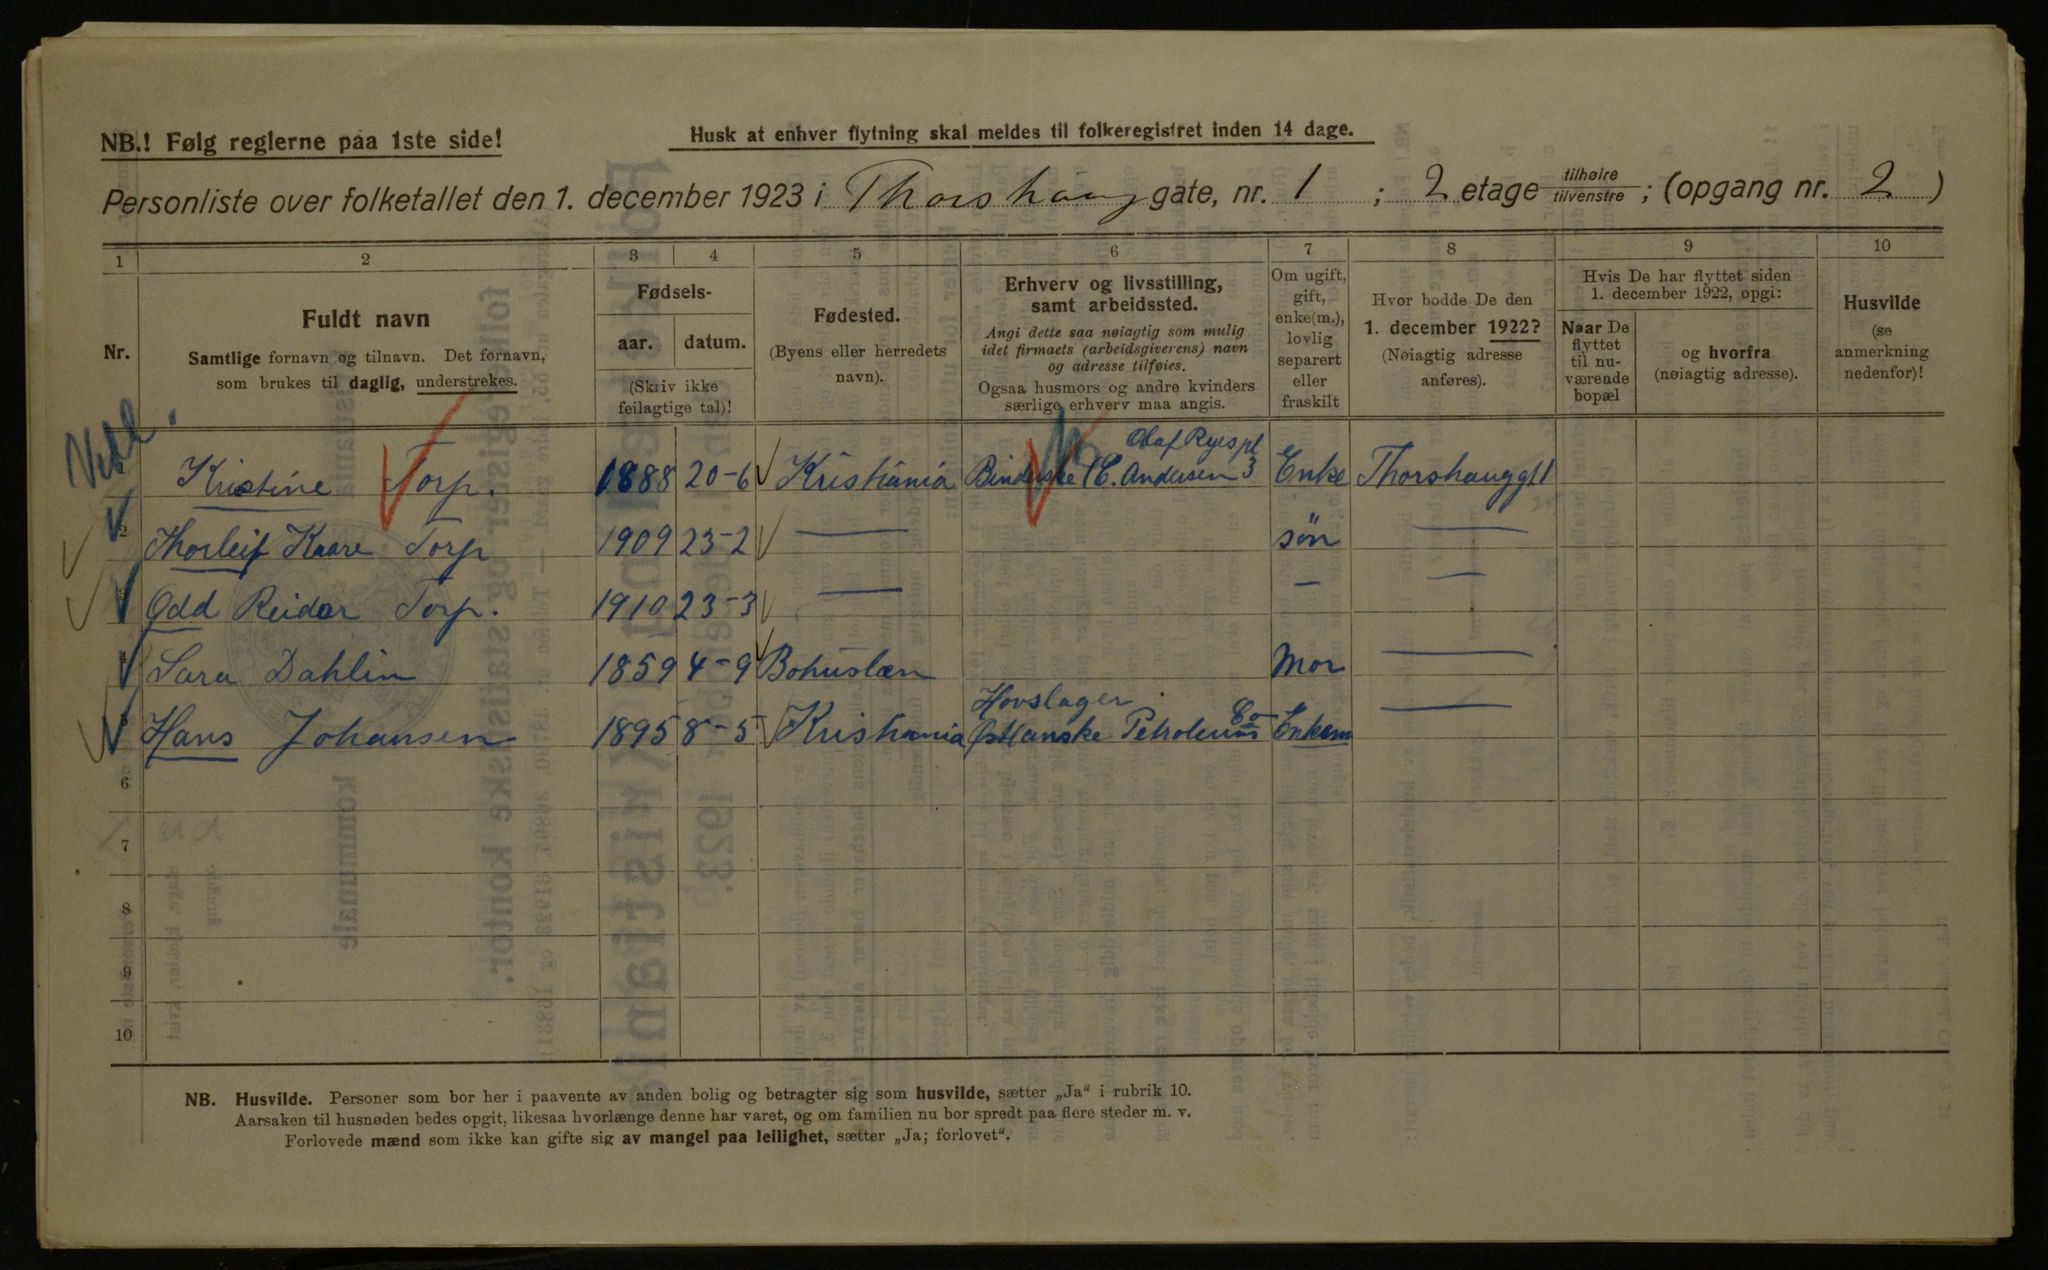 NB.! Følg reglerne paa 1ste side!
Husk at enhver flytning skal meldes til folkeregistret inden 14 dage.
Personliste over folketallet den 1. december 1923 i Thorshaug gate, nr. 1 ; 2 etage tilhøire/tilvenstre ; (opgang nr. 2 )
1 2 3 4 5 6 7 8 9 10
Nr.
Fuldt navn
Samtlige fornavn og tilnavn. Det fornavn,
som brukes til daglig, understrekes.
Fødsels-
aar. datum.
(Skriv ikke
feilagtige tal)!
Fødested.
(Byens eller herredets
navn).
Erhverv og livsstilling,
samt arbeidssted.
Angi dette saa nøiagtig som mulig
idet firmaets (arbeidsgiverens) navn
og adresse tilføies.
Ogsaa husmors og andre kvinders
særlige erhverv maa angis.
Om ugift,
gift,
enke(m.),
lovlig
separert
eller
fraskilt
Hvor bodde De den
1. december 1922?
(Nøiagtig adresse
anføres).
Hvis De har flyttet siden
1. december 1922, opgi:
Naar De
flyttet
til nu-
værende
bopæl
og hvorfra
(nøiagtig adresse).
Husvilde
(se
anmerkning
nedenfor)!
Olaf Ryes pl
Kristine Torp. 1888 20-6 Kristiania Binderske C. Andersen 3 Enke Thorshauggt 1
2 Thorleif Kaare Torp 1909 23-2 — søn —
Odd Reidar Torp. 1910 23-3 — — —
4 Sara Dahlin 1859 4-9 Bohuslæn Mor —
Hovslager
Hans Johansen 1895 8-5 Kristiania Østlanske Petroleums Co Enkem —
6
7
8
9
10
NB. Husvilde. Personer som bor her i paavente av anden bolig og betragter sig som husvilde, sætter „Ja“ i rubrik 10.
Aarsaken til husnøden bedes opgit, likesaa hvorlænge denne har varet, og om familien nu bor spredt paa flere steder m. v.
Forlovede mænd som ikke kan gifte sig av mangel paa leilighet, sætter „Ja; forlovet“.